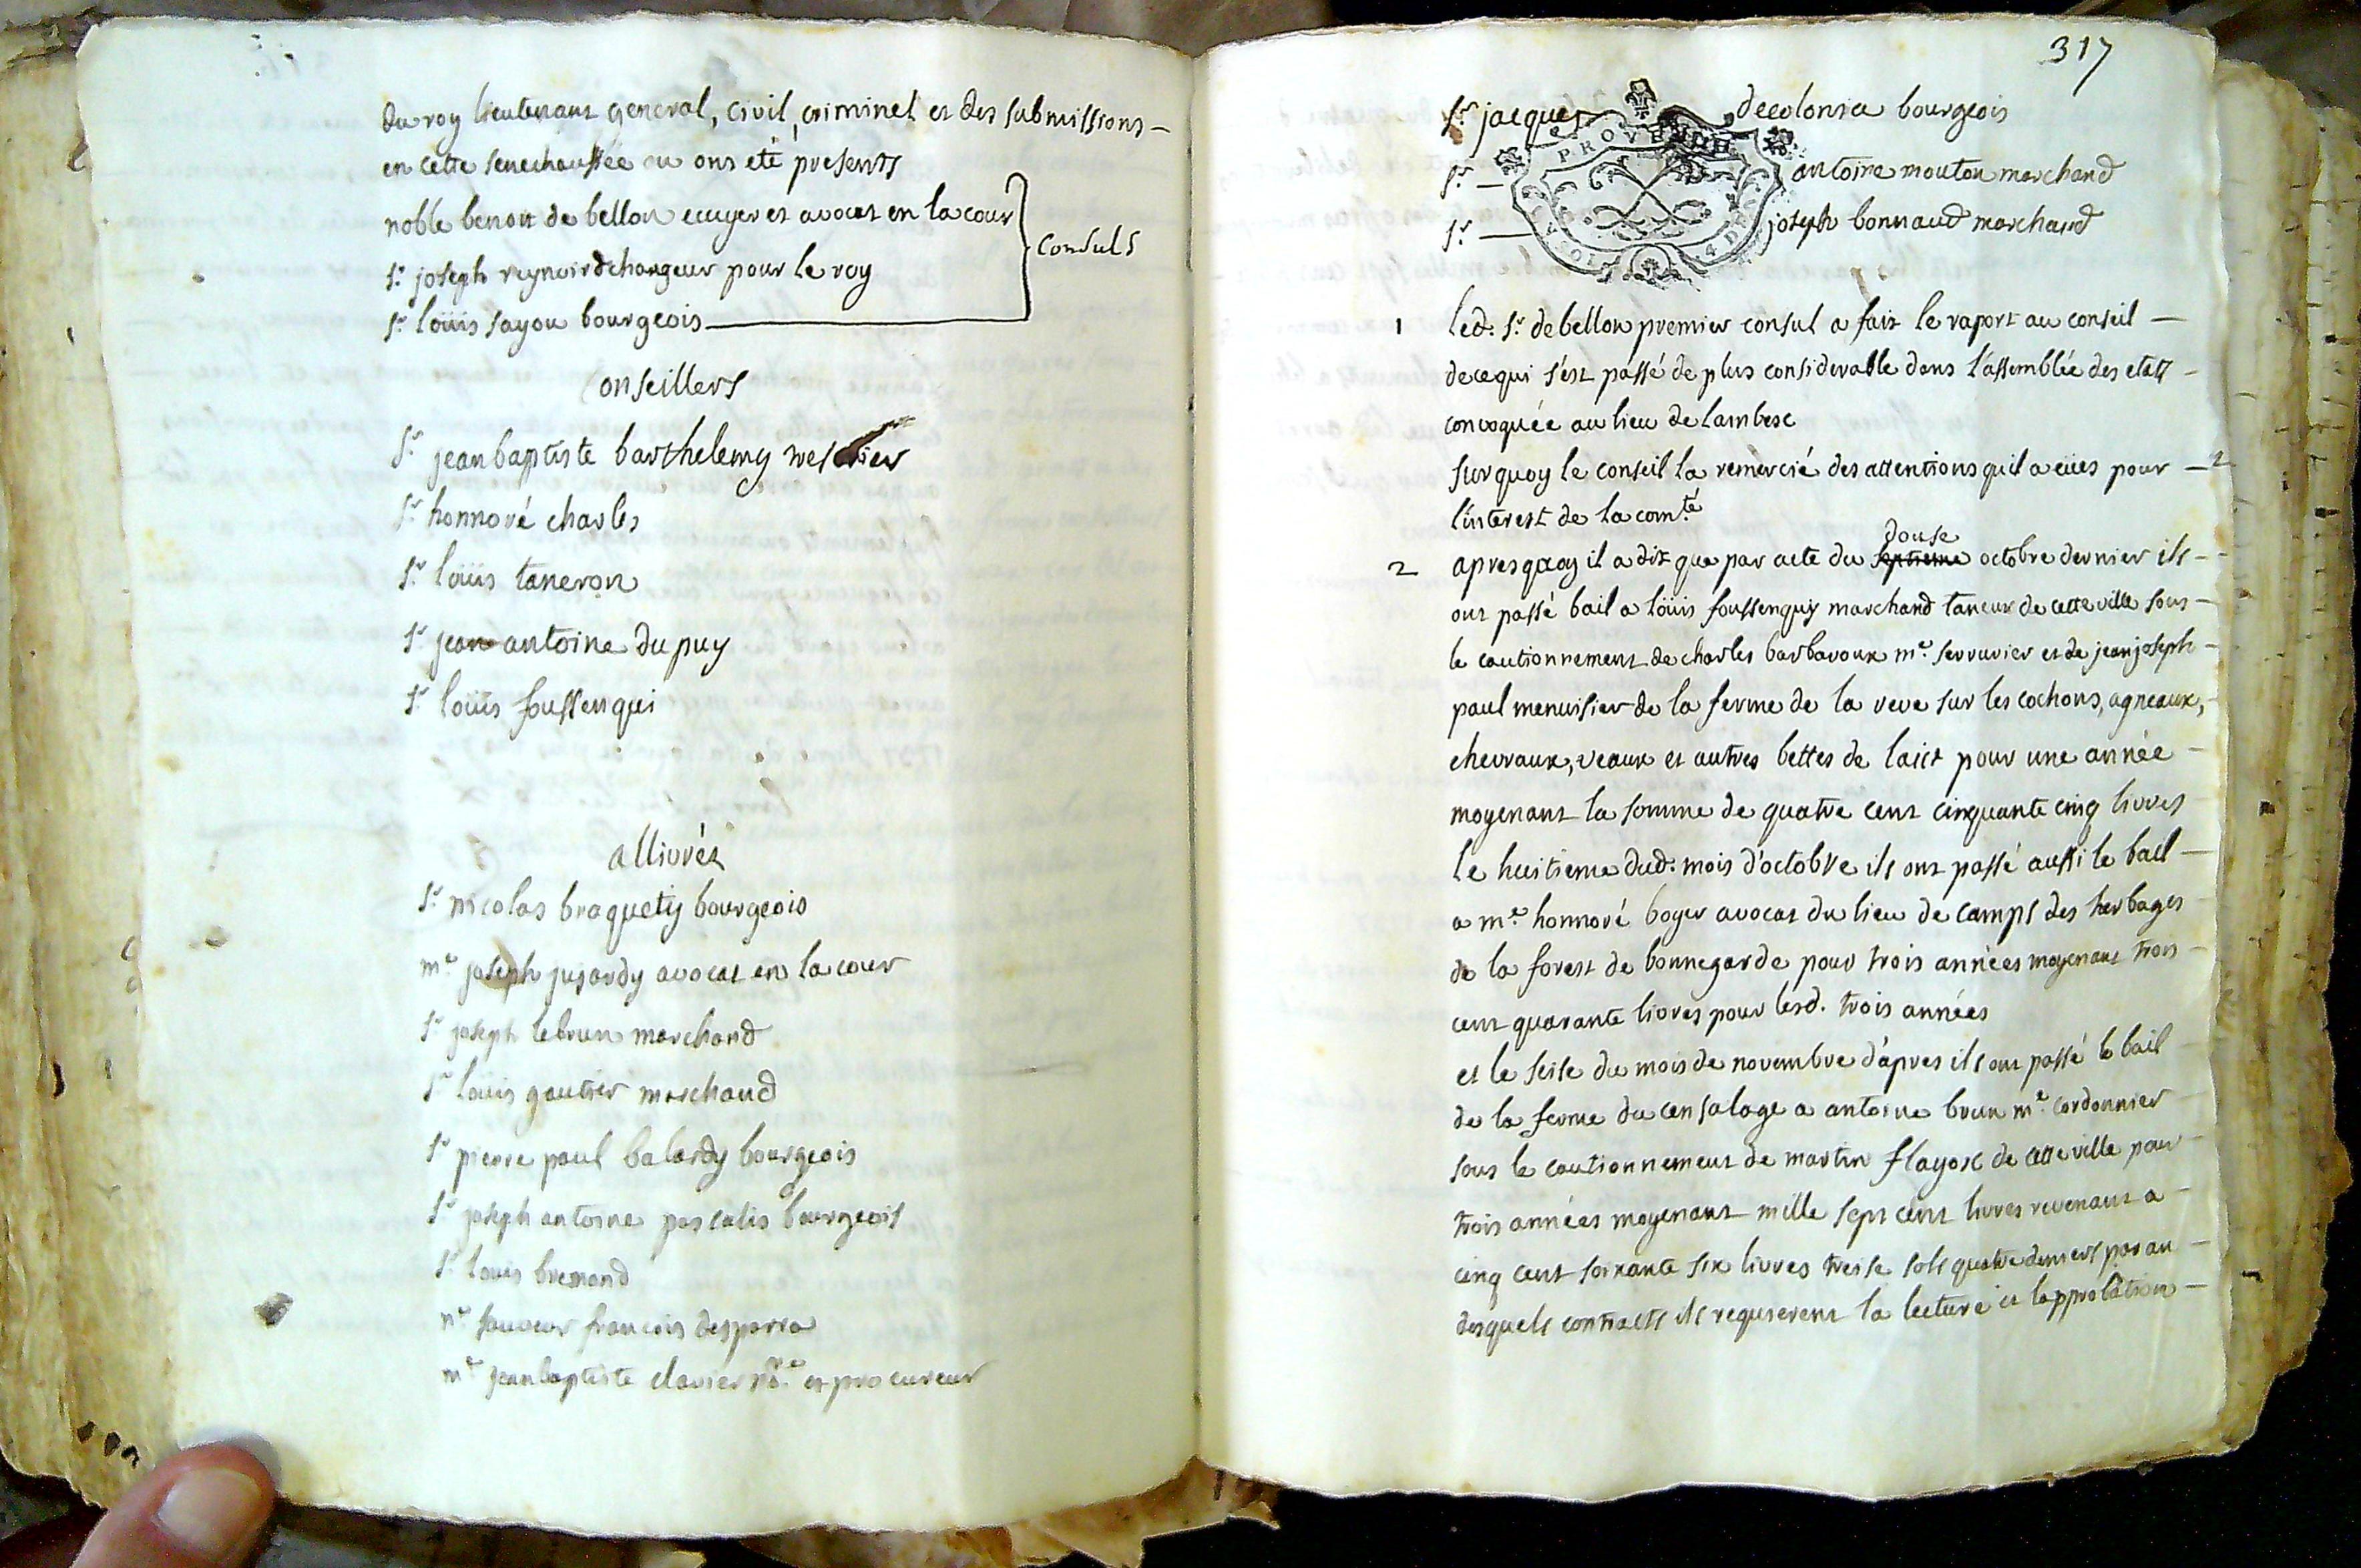 du roy lieutenant general, civil, criminel et des submissions
en cette senechaussée ou ont eté presents
noble benoit de bellon ecuyer et avocat en la cour
sr. joseph reynoird changeur pour le roy
sr. loüis sayou bourgeois
Consuls
Conseillers
sr. jean baptiste barthelemy
sr. honnoré charles
sr. loüis taneron
sr. jean antoine dupuy
sr. loüis foussenqui
allivrés
sr. nicolas braquety bourgeois
me. joseph jujardy avocat en la cour
sr. joseph lebrun marchand
sr. loüis gautier marchand
sr. pierre paul balardy bourgeois
sr. joseph antoine pascalis bourgeois
sr. louis bremond
me. sauveur francois desparra
me. jean baptiste clavier nore. et procureur
317
sr. jacques decolonia bourgeois
PROVENCE
sr. antoine mouton marchand
sr. joseph bonnaud marchand
4 DE
1 led. sr. de bellon premier consul a fait le raport au conseil
de ce qui s'est passé de plus considerable dans l'assemblée des etats
convoquée au lieu de lambesc
sur quoy le conseil la remercié des attentions quil a eües pour
l'interest de la comté
2 apres quoy il a dit que par acte du septieme douse octobre dernier ils
ont passé bail a loüis foussenquy marchand taneur de cette ville sous
le cautionnement de charles barbaroux me. serrurier et de jean joseph
paul menuisier de la ferme de la reve sur les cochons, agneaux,
chevraux, veaux et autres bettes de laict pour une année
moyenant la somme de quatre cent cinquante cinq livres
le huitieme dud. mois d'octobre ils ont passé aussi le bail
a me. honnoré boyer avocat du lieu de camps des herbages
de la forest de bonnegarde pour trois années moyenant trois
cent quarante livres pour lesd. trois années
et le seise du mois de novembre d'apres ils ont passé le bail
de la ferme du censalage a antoine brun me. cordonnier
sous le cautionnement de martin flayosc de cette ville pour
trois années moyenant mille sept cent livres revenant a
cinq cent soixante six livres treise sols quatre deniers par an
desquels contracts ils requierent la lecture et l'approbation